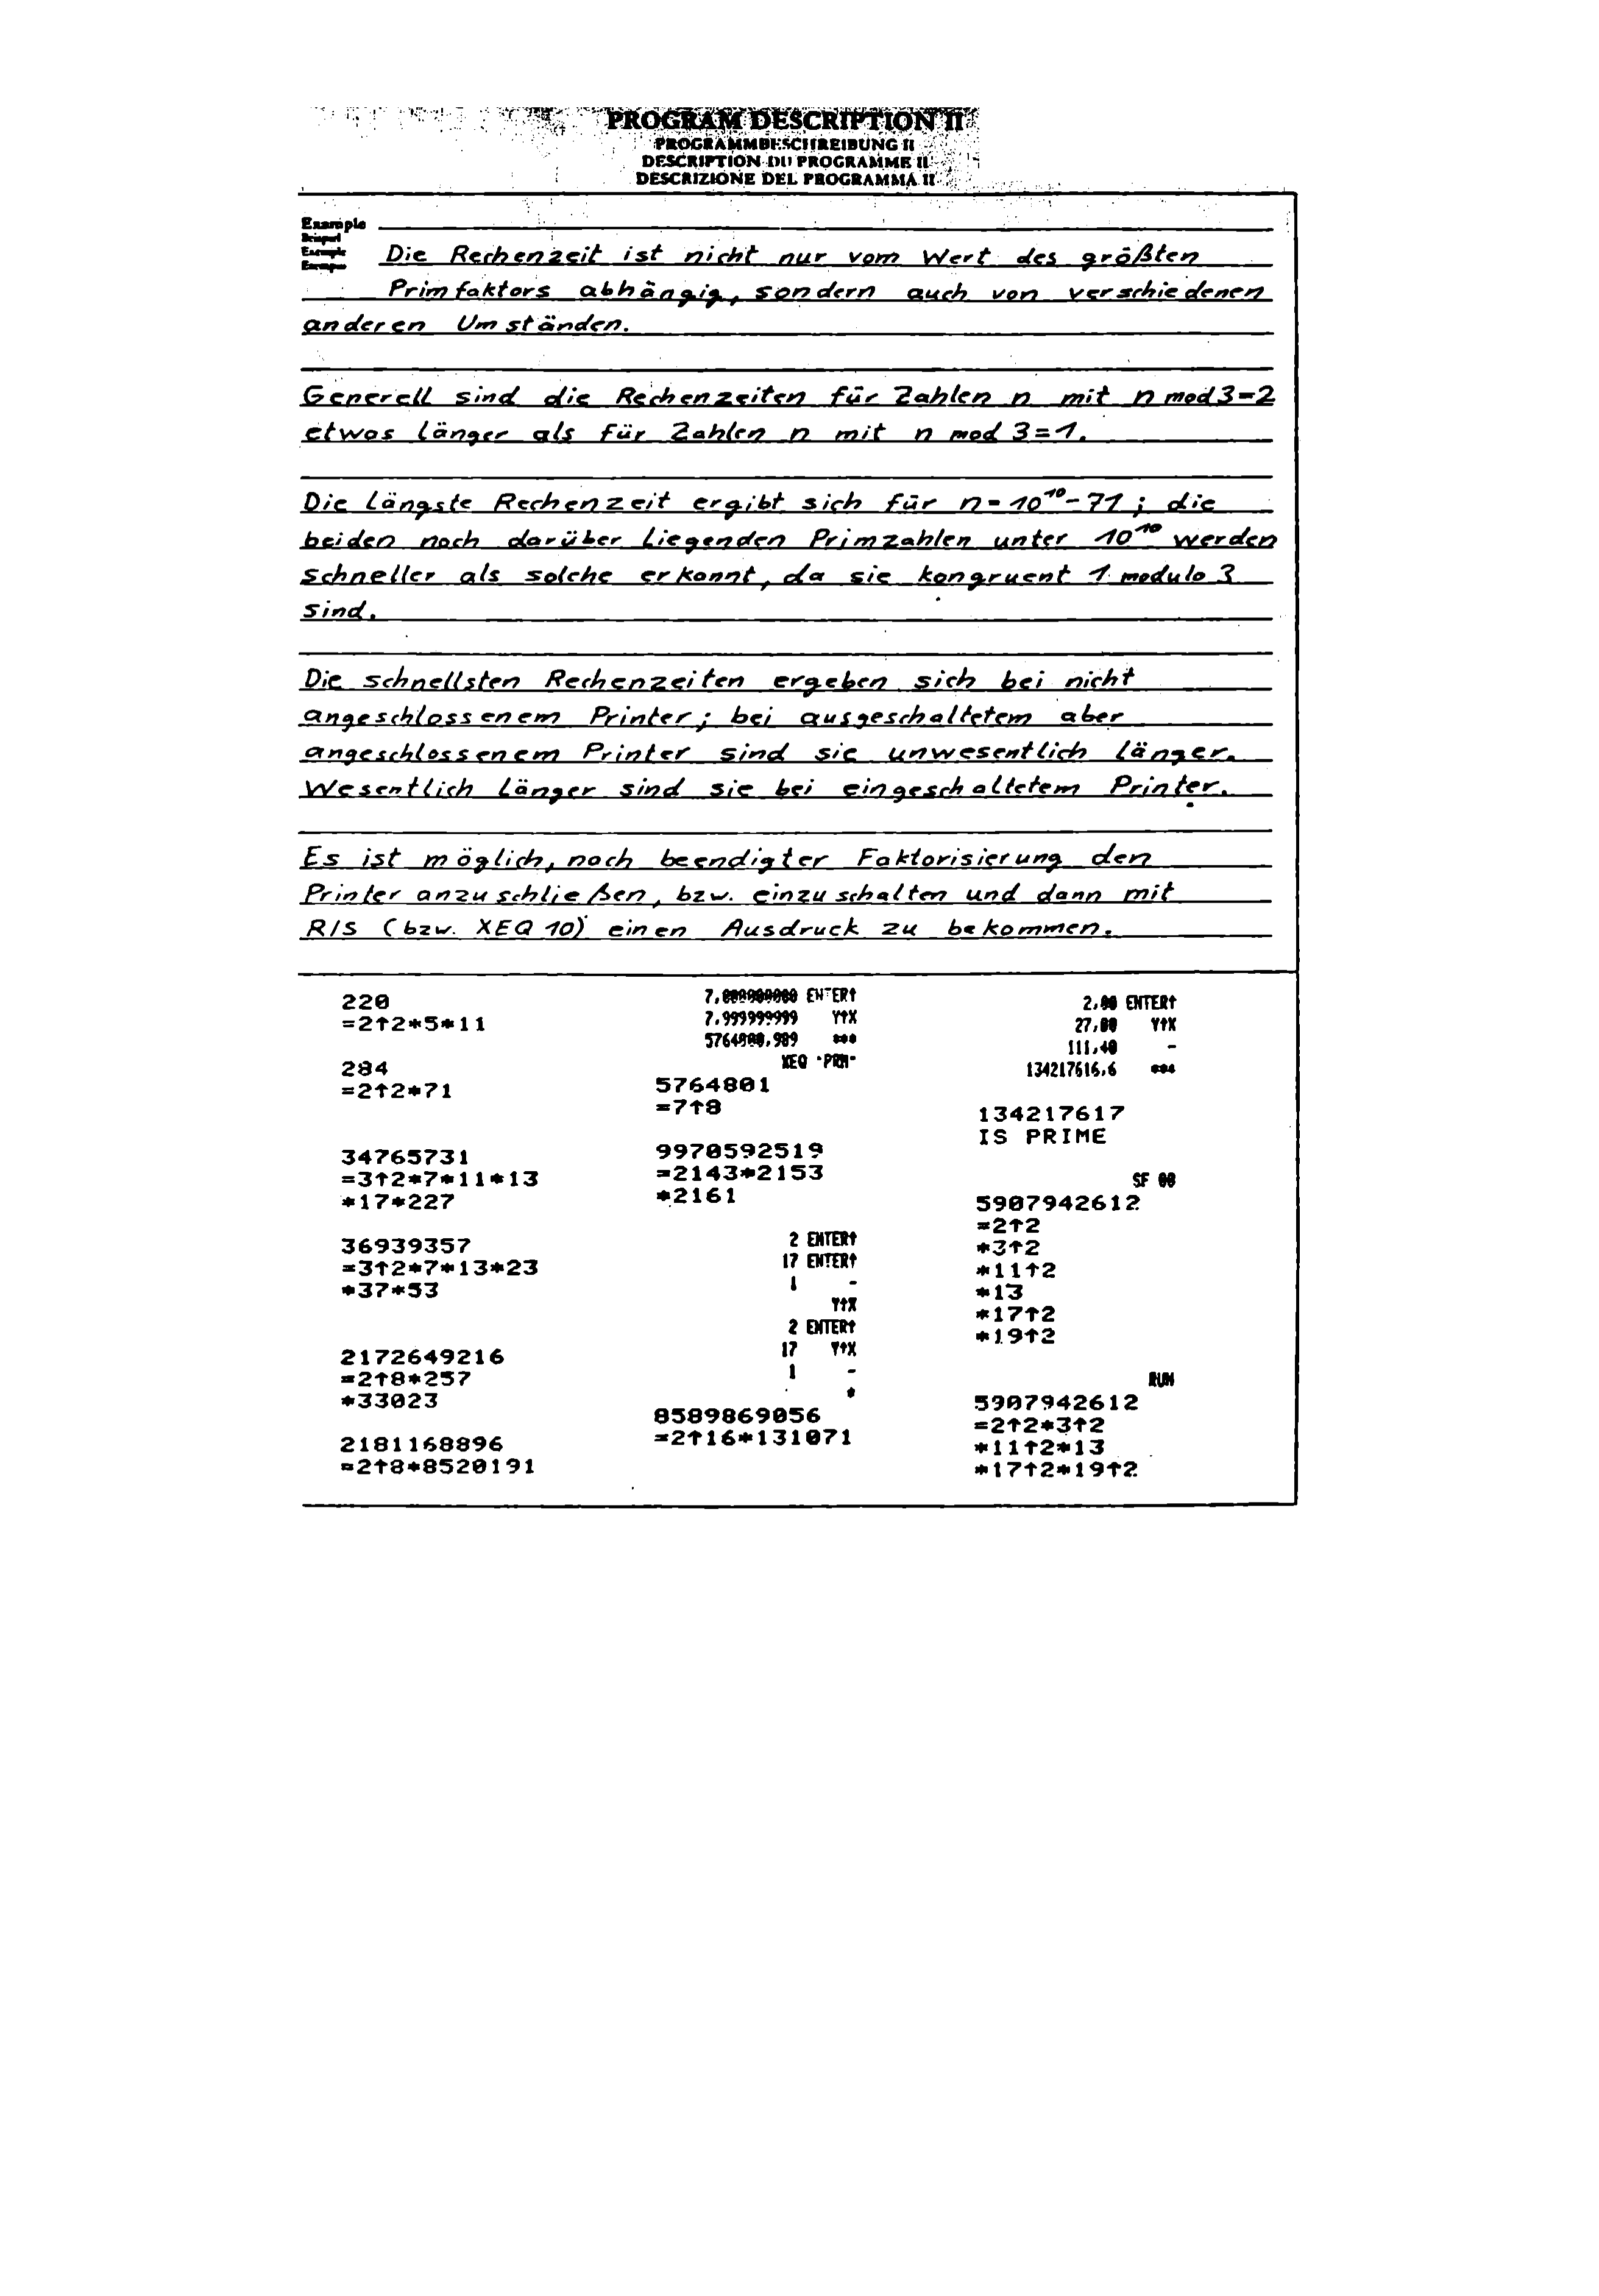 PROGRAM DESCRIPTION II
PROGRAMMBESCHREIBUNG II
DESCRIPTION DU PROGRAMME II
DESCRIZIONE DEL PROGRAMMA II
Example
Beispiel
Exemple
Esempio
Die Rechenzeit ist nicht nur vom Wert des größten
Primfaktors abhängig, sondern auch von verschiedenen
anderen Umständen.
Generell sind die Rechenzeiten für Zahlen n mit n mod 3=2
etwas länger als für Zahlen n mit n mod 3=1.
Die längste Rechenzeit ergibt sich für n=10¹⁰-71; die
beiden noch darüber liegenden Primzahlen unter 10¹⁰ werden
schneller als solche erkannt, da sie kongruent 1 modulo 3
sind.
Die schnellsten Rechenzeiten ergeben sich bei nicht
angeschlossenem Printer; bei ausgeschaltetem aber
angeschlossenem Printer sind sie unwesentlich länger.
Wesentlich länger sind sie bei eingeschaltetem Printer.
Es ist möglich, nach beendigter Faktorisierung den
Printer anzuschließen, bzw. einzuschalten und dann mit
R/S (bzw. XEQ 10) einen Ausdruck zu bekommen.
220
=2↑2*5*11
284
=2↑2*71
34765731
=3↑2*7*11*13
*17*227
36939357
=3↑2*7*13*23
*37*53
2172649216
=2↑8*257
*33023
2181168896
=2↑8*8520191
7,000000000 ENTER↑
7,999999999 Y↑X
5764800,989 ***
XEQ "PRM"
5764801
=7↑8
9970592519
=2143*2153
*2161
2 ENTER↑
17 ENTER↑
1 -
Y↑X
2 ENTER↑
17 Y↑X
1 -
*
8589869056
=2↑16*131071
2,00 ENTER↑
27,00 Y↑X
111,40 -
134217616,6 ***
134217617
IS PRIME
SF 00
5907942612
=2↑2
*3↑2
*11↑2
*13
*17↑2
*19↑2
RUN
5907942612
=2↑2*3↑2
*11↑2*13
*17↑2*19↑2